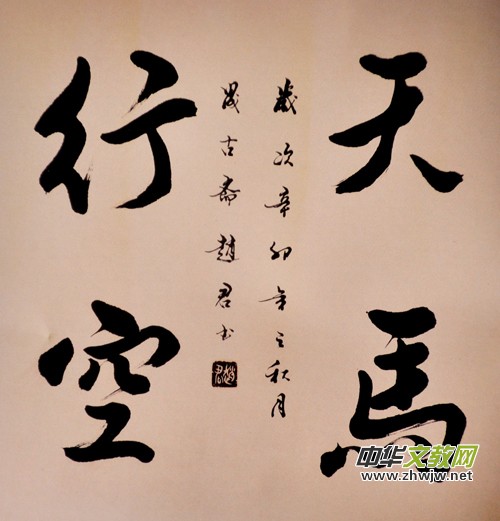 天馬
歲次辛卯年之秋月
晟古齋趙君书
趙君
行空
中华文教网
www.zhwjw.net